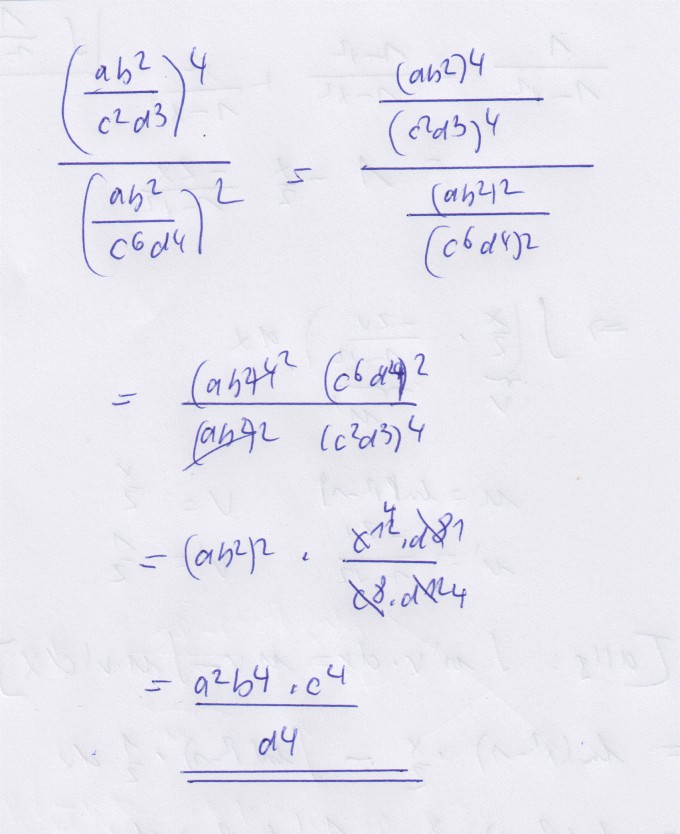 (ab²/c²d³)⁴ / (ab²/c⁶d⁴)² = (ab²)⁴/(c²d³)⁴ / (ab²)²/(c⁶d⁴)²
= (ab²)⁴ ² (c⁶d⁴)² / (ab²)² (c²d³)⁴
= (ab²)² · c¹² ⁴ · d⁸ 1 / c⁸ · d¹² 4
= a²b⁴ · c⁴ / d⁴